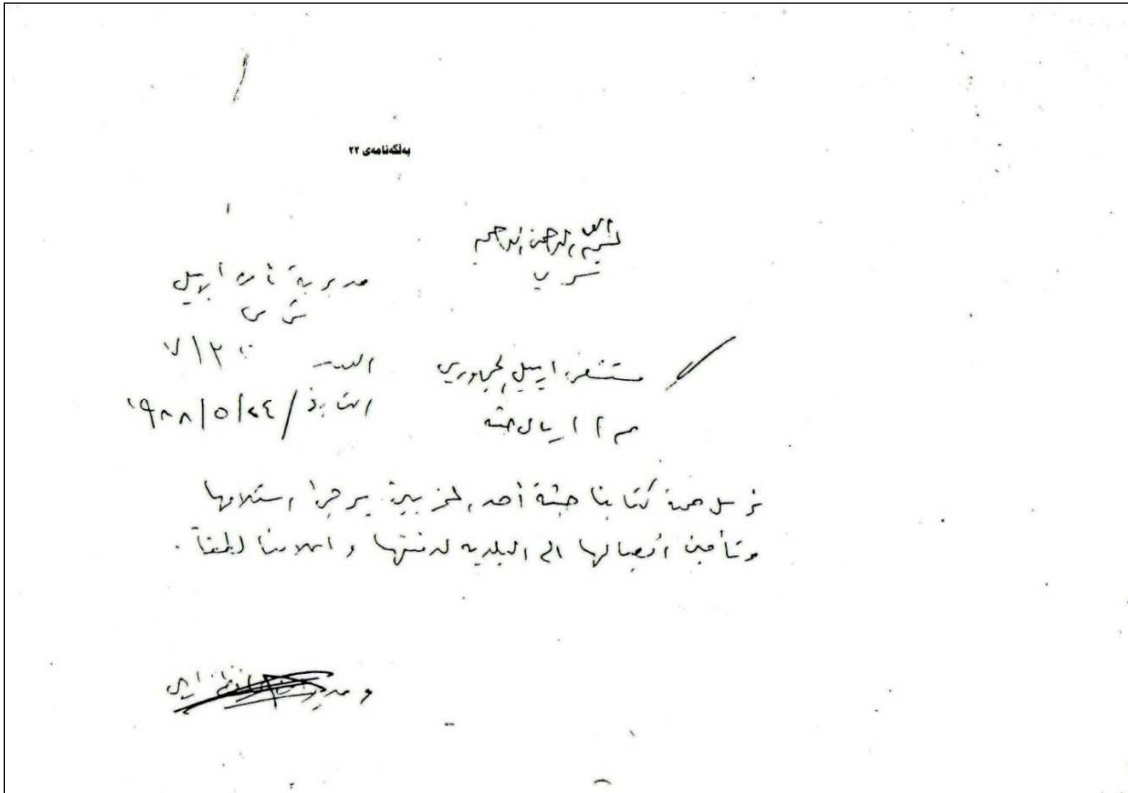 بەڵگەنامەی ٢٢
بسم الله الرحمن الرحيم
سري
مديرية أمن أربيل
ش س
العدد ٧/٢
التاريخ / ٢٤/٥/١٩٨٨
مستشفى اربيل الجمهوري
م / ارسال جثة
نرسل صحبة كتابنا جثة أحد المخربين يرجى استلامها
وتأمين ايصالها الى البلدية لدفنها واعلامنا لطفاً .
مدير أمن